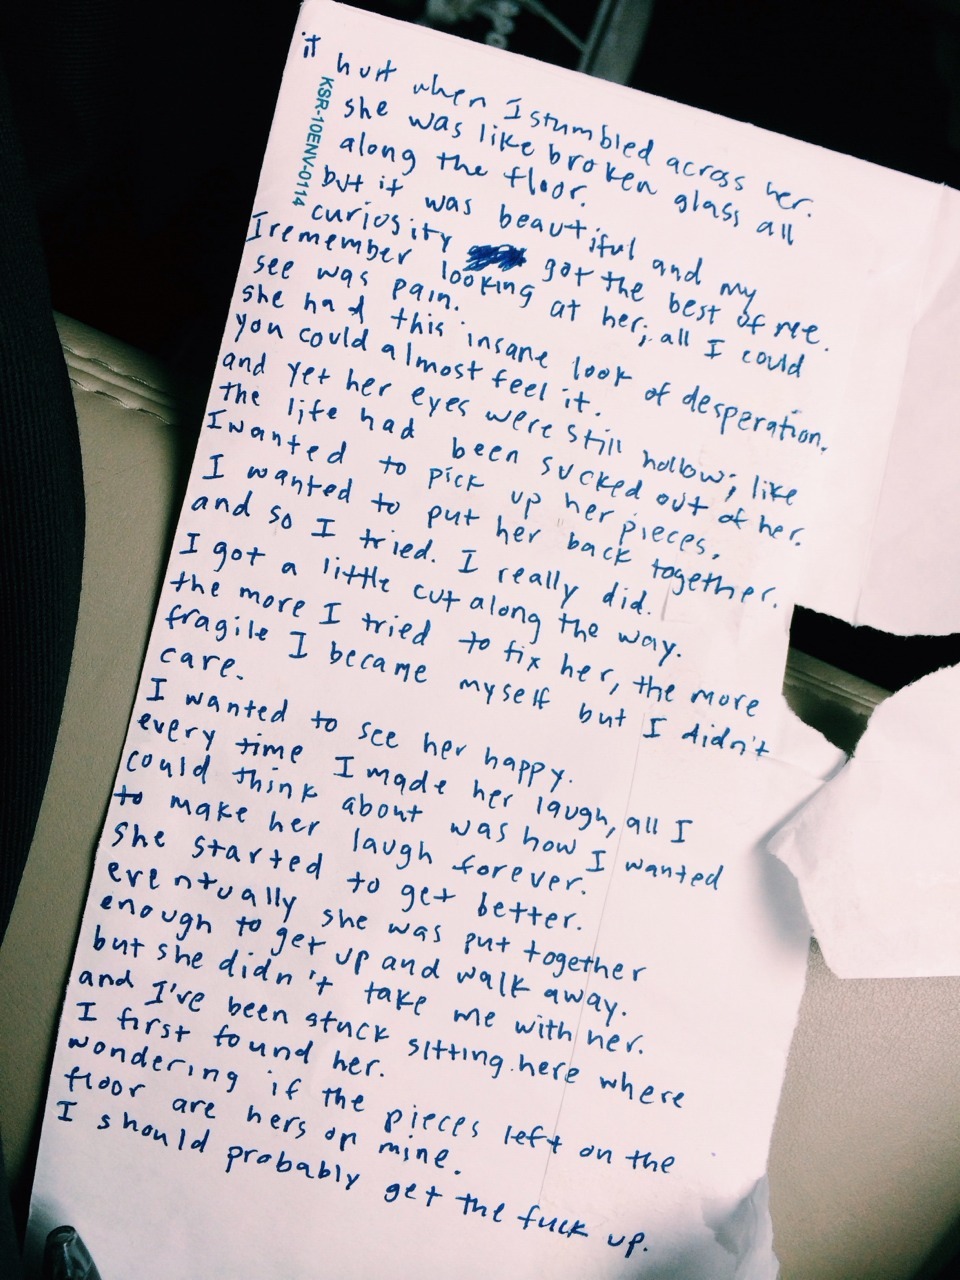 it hurt when I stumbled across her.
she was like broken glass all
along the floor.
but it was beautiful and my
curiosity got the best of me.
I remember looking at her; all I could
see was pain.
she had this insane look of desperation.
you could almost feel it.
and yet her eyes were still hollow; like
the life had been sucked out of her.
I wanted to pick up her pieces.
I wanted to put her back together.
and so I tried. I really did.
I got a little cut along the way.
the more I tried to fix her, the more
fragile I became myself but I didn't
care.
I wanted to see her happy.
every time I made her laugh, all I
could think about was how I wanted
to make her laugh forever.
she started to get better.
eventually she was put together
enough to get up and walk away.
but she didn't take me with her.
and I've been stuck sitting here where
I first found her.
wondering if the pieces left on the
floor are hers or mine.
I should probably get the fuck up.
KSR-10ENV-0114